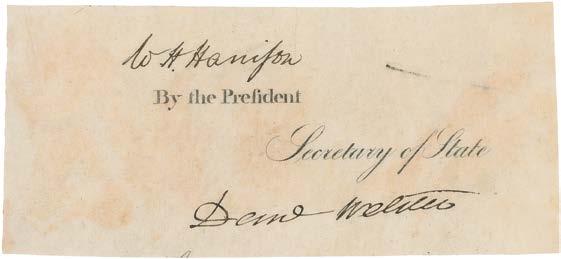 W H Harrison
By the Preſident
Secretary of State
Danl Webster